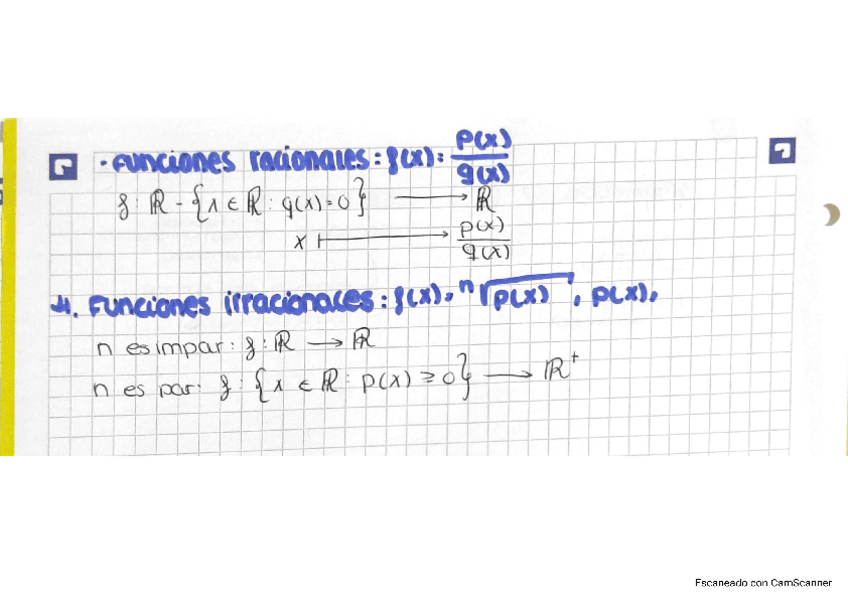 · Funciones racionales: f(x): p(x)/q(x)
f: ℝ - {x ∈ ℝ : q(x)=0} ⟶ ℝ
x ⟼ p(x)/q(x)
4. Funciones irracionales: f(x), ⁿ√p(x), p(x),
n es impar: f: ℝ ⟶ ℝ
n es par: f: {x ∈ ℝ : p(x) ≥ 0} ⟶ ℝ⁺
Escaneado con CamScanner